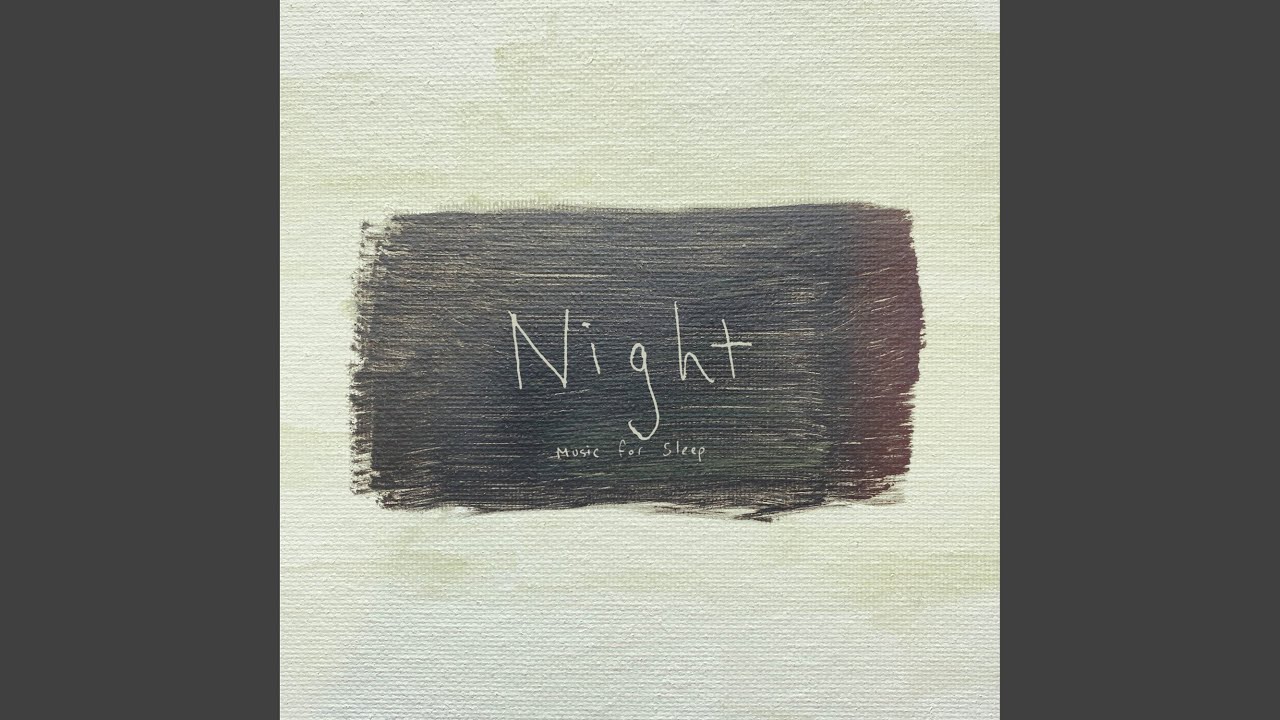 Night
Music for Sleep